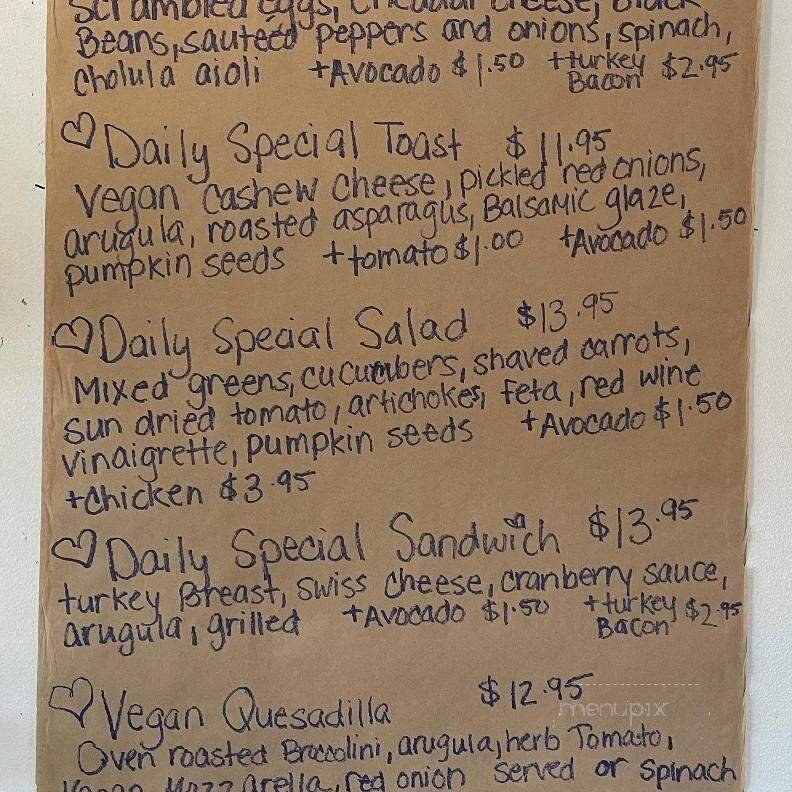 Scrambled eggs, cheddar cheese, Black
Beans, sauteed peppers and onions, spinach,
cholula aioli +Avocado $1.50 +turkey Bacon $2.95
Daily Special Toast $11.95
Vegan cashew cheese, pickled red onions,
arugula, roasted asparagus, Balsamic glaze,
pumpkin seeds +tomato $1.00 +Avocado $1.50
Daily Special Salad $13.95
Mixed greens, cucumbers, shaved carrots,
sun dried tomato, artichokes, feta, red wine
vinaigrette, pumpkin seeds +Avocado $1.50
+Chicken $3.95
Daily Special Sandwich $13.95
turkey Breast, swiss cheese, cranberry sauce,
arugula, grilled +Avocado $1.50 +turkey Bacon $2.95
Vegan Quesadilla $12.95
menupix
Oven roasted Broccolini, arugula, herb Tomato,
Vegan Mozzarella, red onion served or spinach